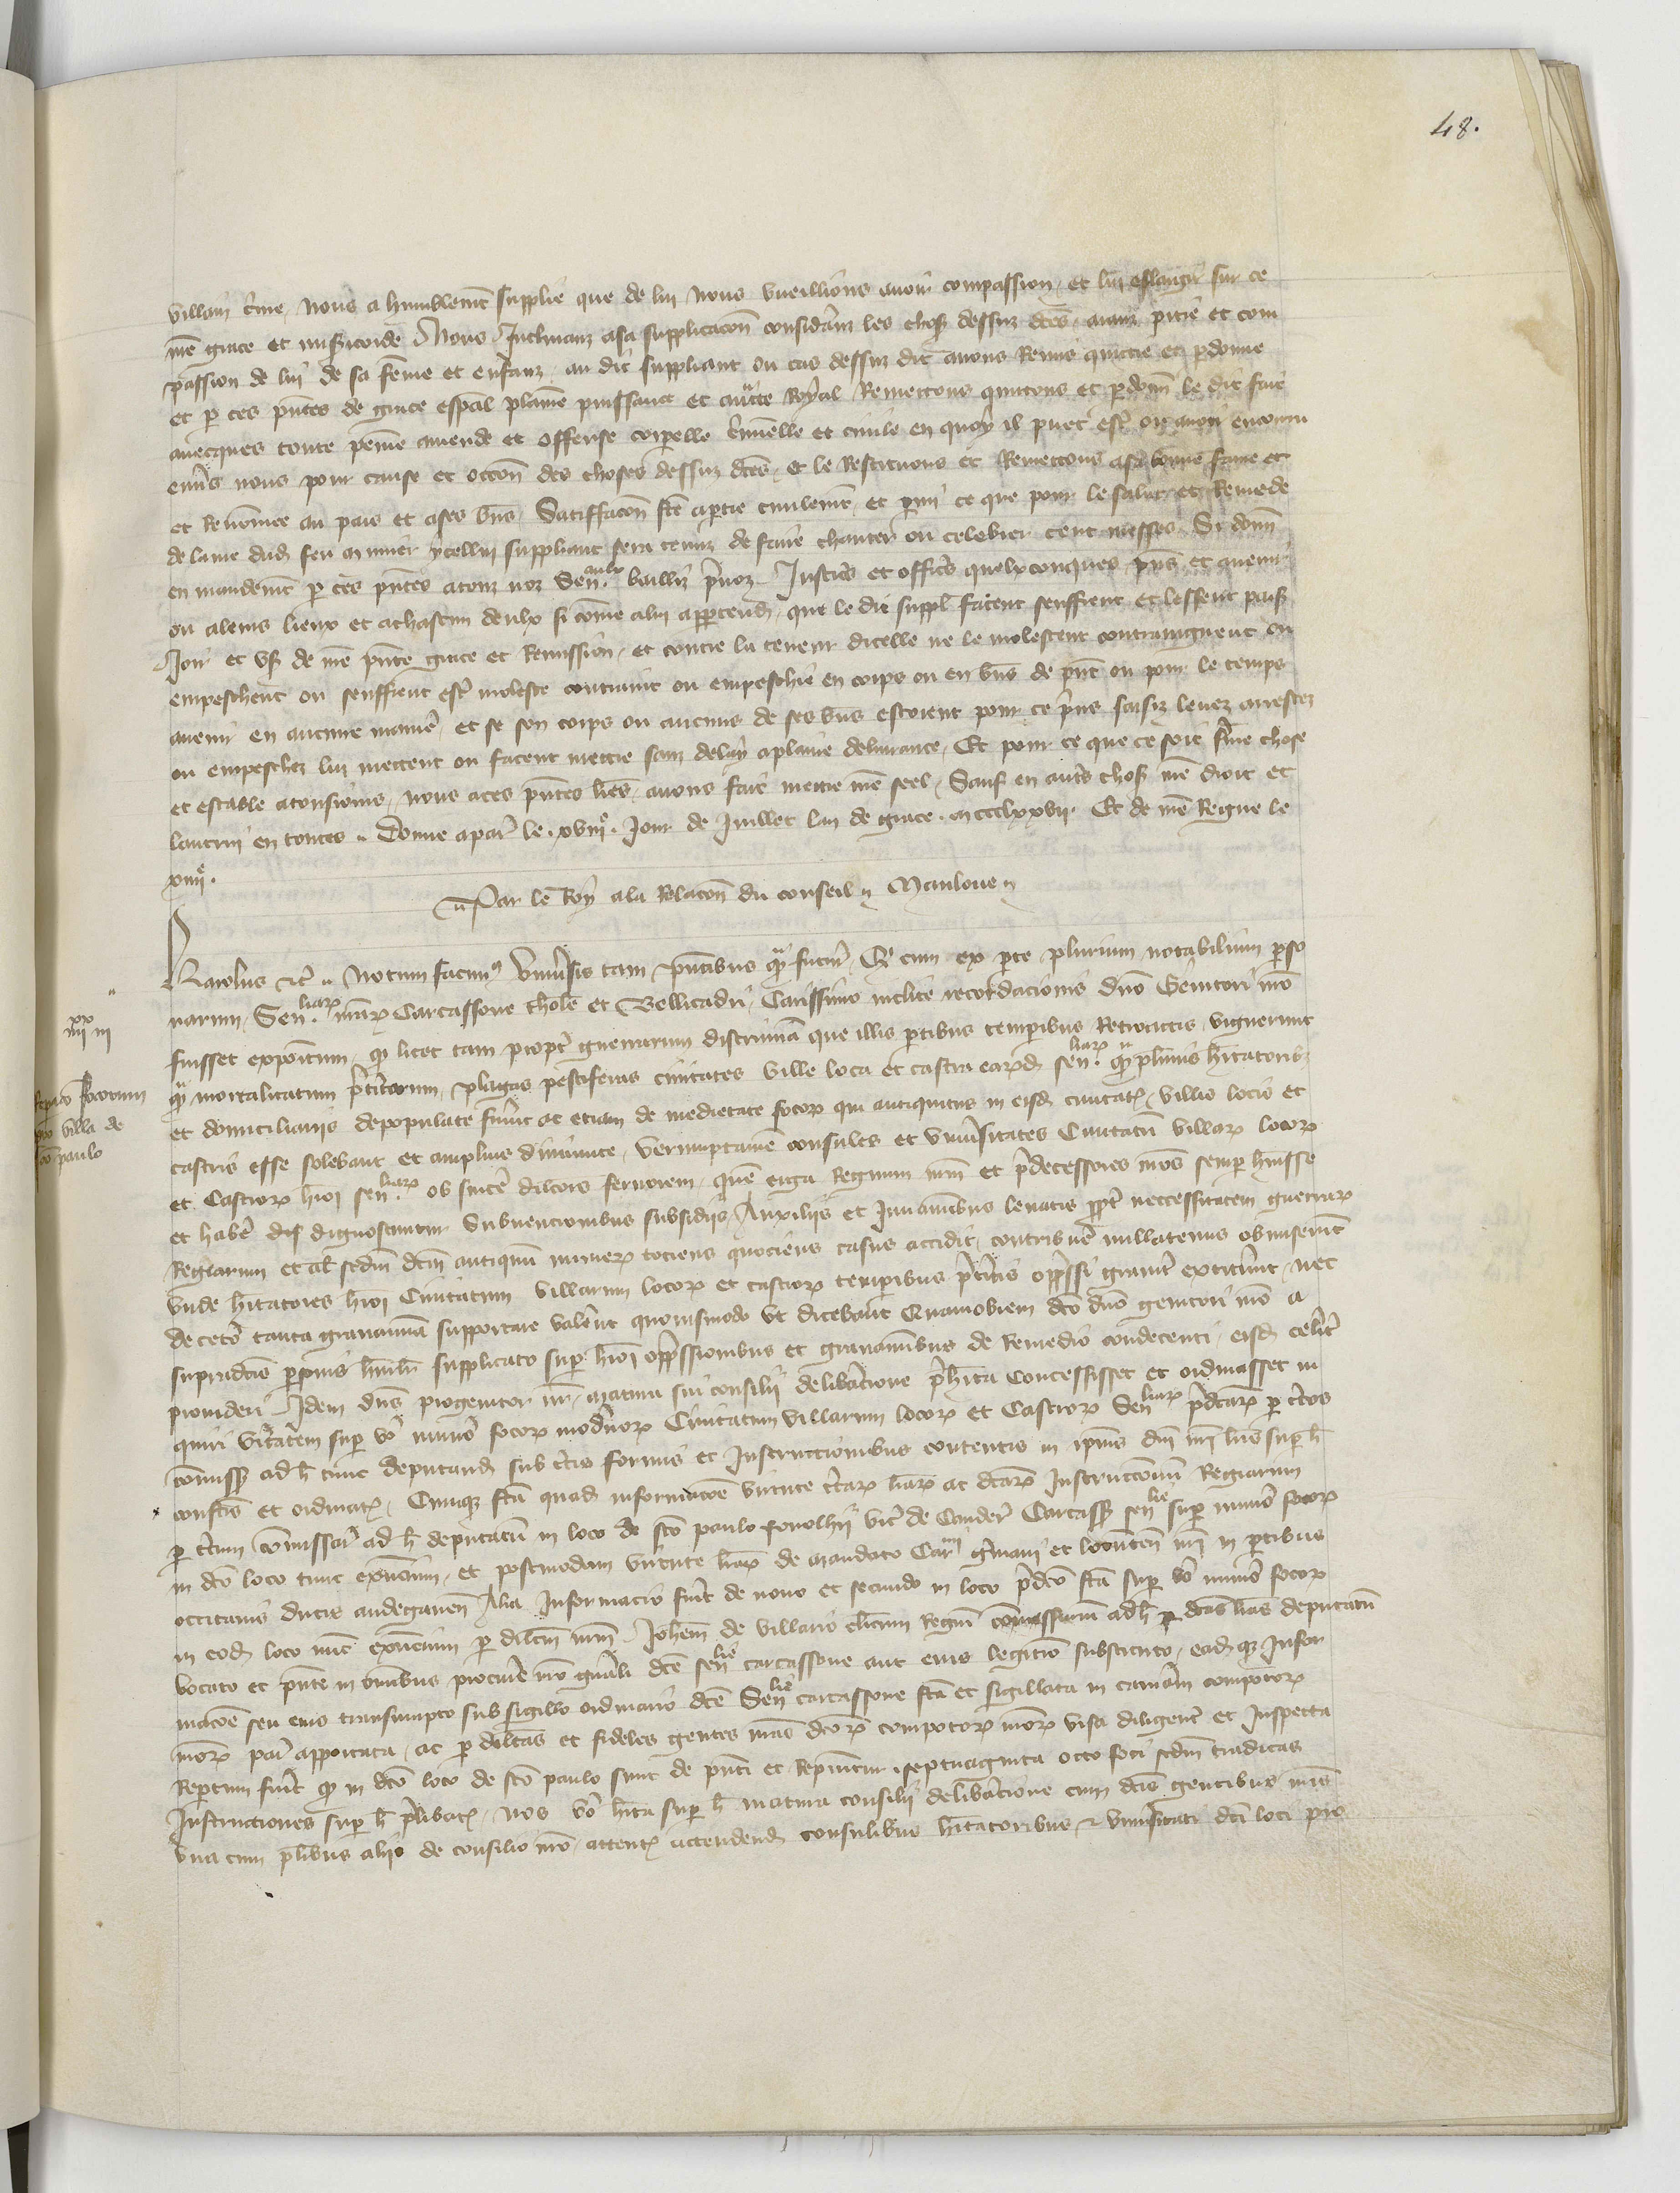 48.
villain crime, nous a humblement supplie que de lui nous vueillions avoir compassion, et lui eslargir sur ce
nre grace et misericorde Nous Inclinanz a sa supplicacon considerans les choses dessus dcēs, aianz pitie et com
passion de lui de sa feme et enfanz, au dit suppliant ou cas dessus dit avons Remis quittie et pdonne
et p ces pntes de grace espal plaine puissance et auctte Royal Remettons quittons et pdonnons le dit fait
avecques toute peine amende et offense corpelle criminelle et civile en quoy il puet estre ou avoir encouru
envers nous pour cause et occon des choses dessus dcēs, et le Restituons et Remettons a sa bonne fame et
et Renomee au pais et a ses biens, Satiffacon fte a ptie civilement, et pmi ce que pour le salut et Remede
de lame dud feu ycellui suppliant sera tenuz de faire chanter ou celebrer cent messes Si donns
en mandement p ces pntes a touz noz Sen. aulx baillifs prevoz Justiciers et officiers quelxconques pns et avenir
ou a leurs lieux et a chascun deulx si come a lui apptendra, que le dit suppl facent seuffrent et lessent paisiblement
Joir et user de nre pnte grace et Remission, et contre la teneur dicelle ne le molestent contraingnent ou
empeschent ou seuffrent estre moleste contraint ou empeschie en corps ou en biens de pnt ou pour le temps
avenir en aucune maniere, et se son corps ou aucuns de ses biens estoient pour ce pris saisiz levez arrestez
ou empeschez lui mettent ou facent mettre sanz delay a plaine delivrance, Et pour ce que ce soit ferme chose
et estable a tousiours, nous a ces pntes lres, avons fait mettre nre seel, Sauf en autres choses nre droit et
lautrui en toutes. Donne a paris le .xviiie. Jour de Juillet lan de grace .mccclxxvii. Et de nre Regne le
xiiiie.
Par le Roy a la Relacon du conseil Manloue
Karolus etc. Notum facimus Universis tam pntibus qua futuris, Qd cum ex pte plurium notabilium pso
narum, Sen. liarum nrarum Carcassone Tholose et Bellicadri, Carissimo inclite recordacionis dno Genitori nro
fuisset expositum, qd licet tam propter guerrarum discrimina que illis ptibus tempibus Retroactis, viguerunt
qua mortalitatum pteritarum, plagas pestiferas civitates ville loca et castra earumd sen. liarum qua plimis habitatoribus
et domiciliariis depopulate fuerint ac etiam de medietate focorum qui antiquitus in eisd civitatibus, villis locis et
castris esse solebant et amplius diminute, verumptamen consules et Universitates Civitatum villarum locorum
et Castrorum huiusmodi sen. liarum ob sincere dilectionis fervorem, quem erga Regnum nrm et predecessores nros semper habuisse
et habere dignoscuntur Subvencionibus subsidiis, Auxiliis et Juvaminibus levatis propter necessitatem guerrarum
Regiarum et al secundum dcm antiquum numerum tociens quociens casus accidit, contribuere nullatenus obmiserunt
Unde habitatores huiusmodi Civitatum villarum locorum et castrorum temporibus preteritis oppressi graviter extiterunt, nec
de cetero tanta gravamina supportare valerent quovismodo ut dicebant Quamobrem dco dno genitori nro a
supradictis personis humiliter supplicato super huiusmodi oppressionibus et gravaminibus de Remedio condecenti, eisd celeriter
provideri Idem dns progenitor nr, matura sui consilii deliberacione prehabita Concessisset et ordinasset in
quiri veritatem super vero numero focorum modernorum Civitatum villarum locorum et Castrorum Sen. liarum predictarum per certos
comissarios ad hoc tunc deputandos sub certis formis et Instructionibus contentis in ipsius dni nri lris super hoc
confectis et ordinatis, Cumque facta quadam informacione virtute certarum lrarum ac dictarum Instructionum Regiarum
per certum comissarium ad hoc deputatum in loco de sco paulo fenolhii Carcassone sen. lie super numero focorum
in dco loco tunc existencium, et postmodum virtute lrarum de mandato Carmi germani et locumten nri in ptibus
occitanis ducis andegaven Alia Informacio fuerit de novo et secundo in loco predco facta super vero numero focorum
in eodem loco nunc existencium per dilectum nrm Johem de villario clericum Regium comissarium ad hoc per dictas lras deputatum
vocato et pnte in omnibus procuratore nro generali dce sen. lie carcassone aut eius legitimo substituto, eademque Infor
macione seu eius transumpto sub sigillo ordinario dce Sen. lie carcassone facta et sigillata in camera compotorum
nrorum paris apportata, ac per dilectas et fideles gentes nras dcorum compotorum nrorum visa diligenter et Inspecta
Repertum fuerit qd in dco loco de sco paulo sunt de pnti et Reperiuntur septuaginta octo foci secundum traditas
Instructiones super hoc prelibatis, Nos vero habita super hoc matura consilii deliberacione cum dcis gentibus nris
una cum pluribus aliis de consilio nro, attentis attendendis consulibus habitatoribus et universitati dci loci pro
iiii xx iii
Repacio focorum
pro villa de
sco paulo